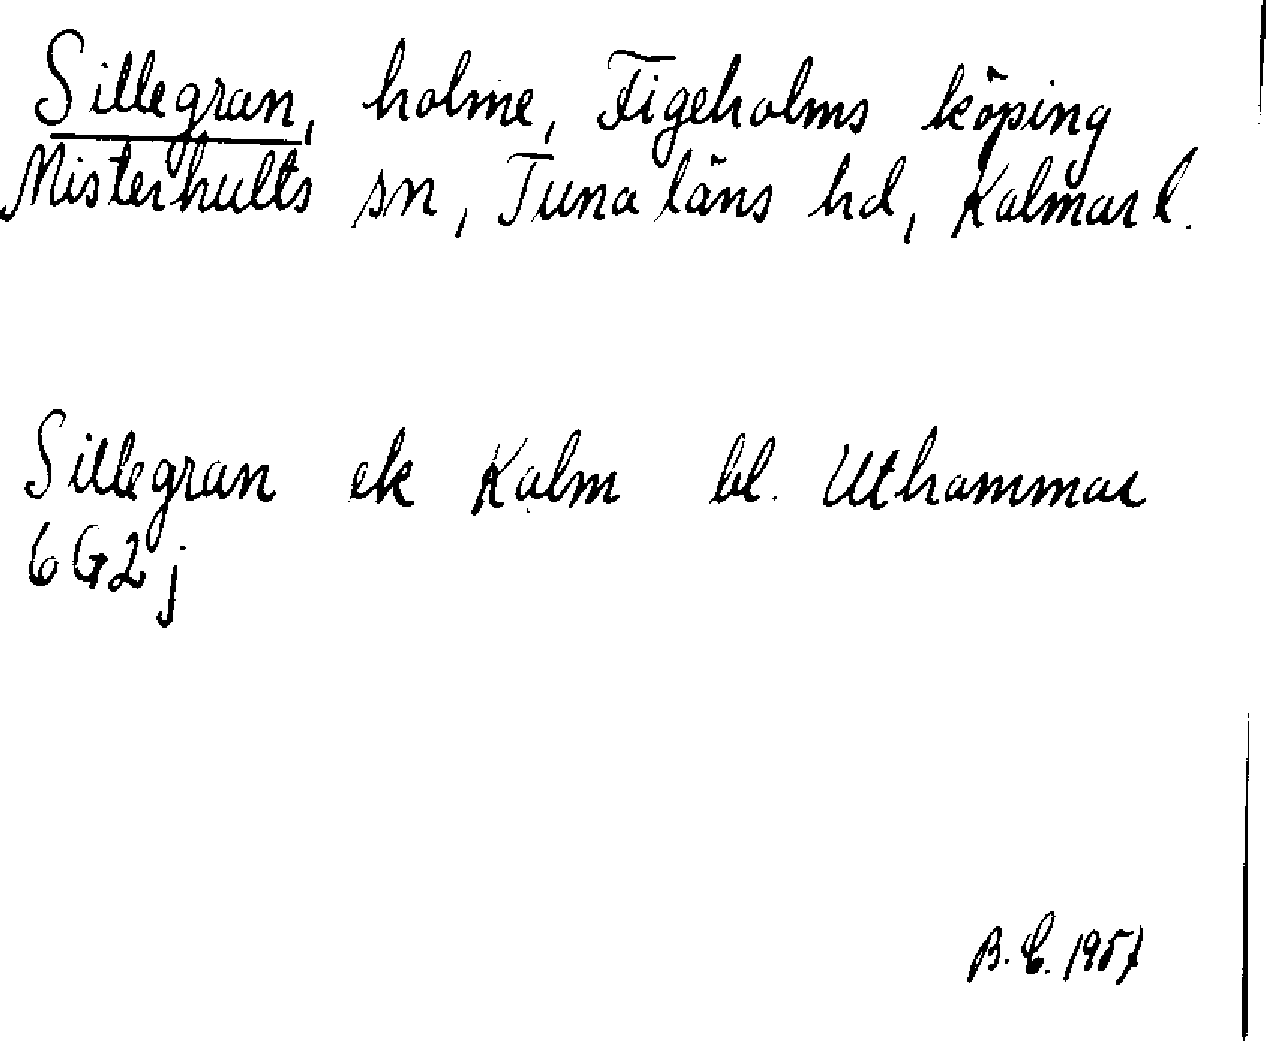 Sillegran, holme, Figeholms köping
Misterhults sn, Tuna läns hd, Kalmar l.
Sillegran ek Kalm bl. Uthammar
6G2j
B. E. 1957